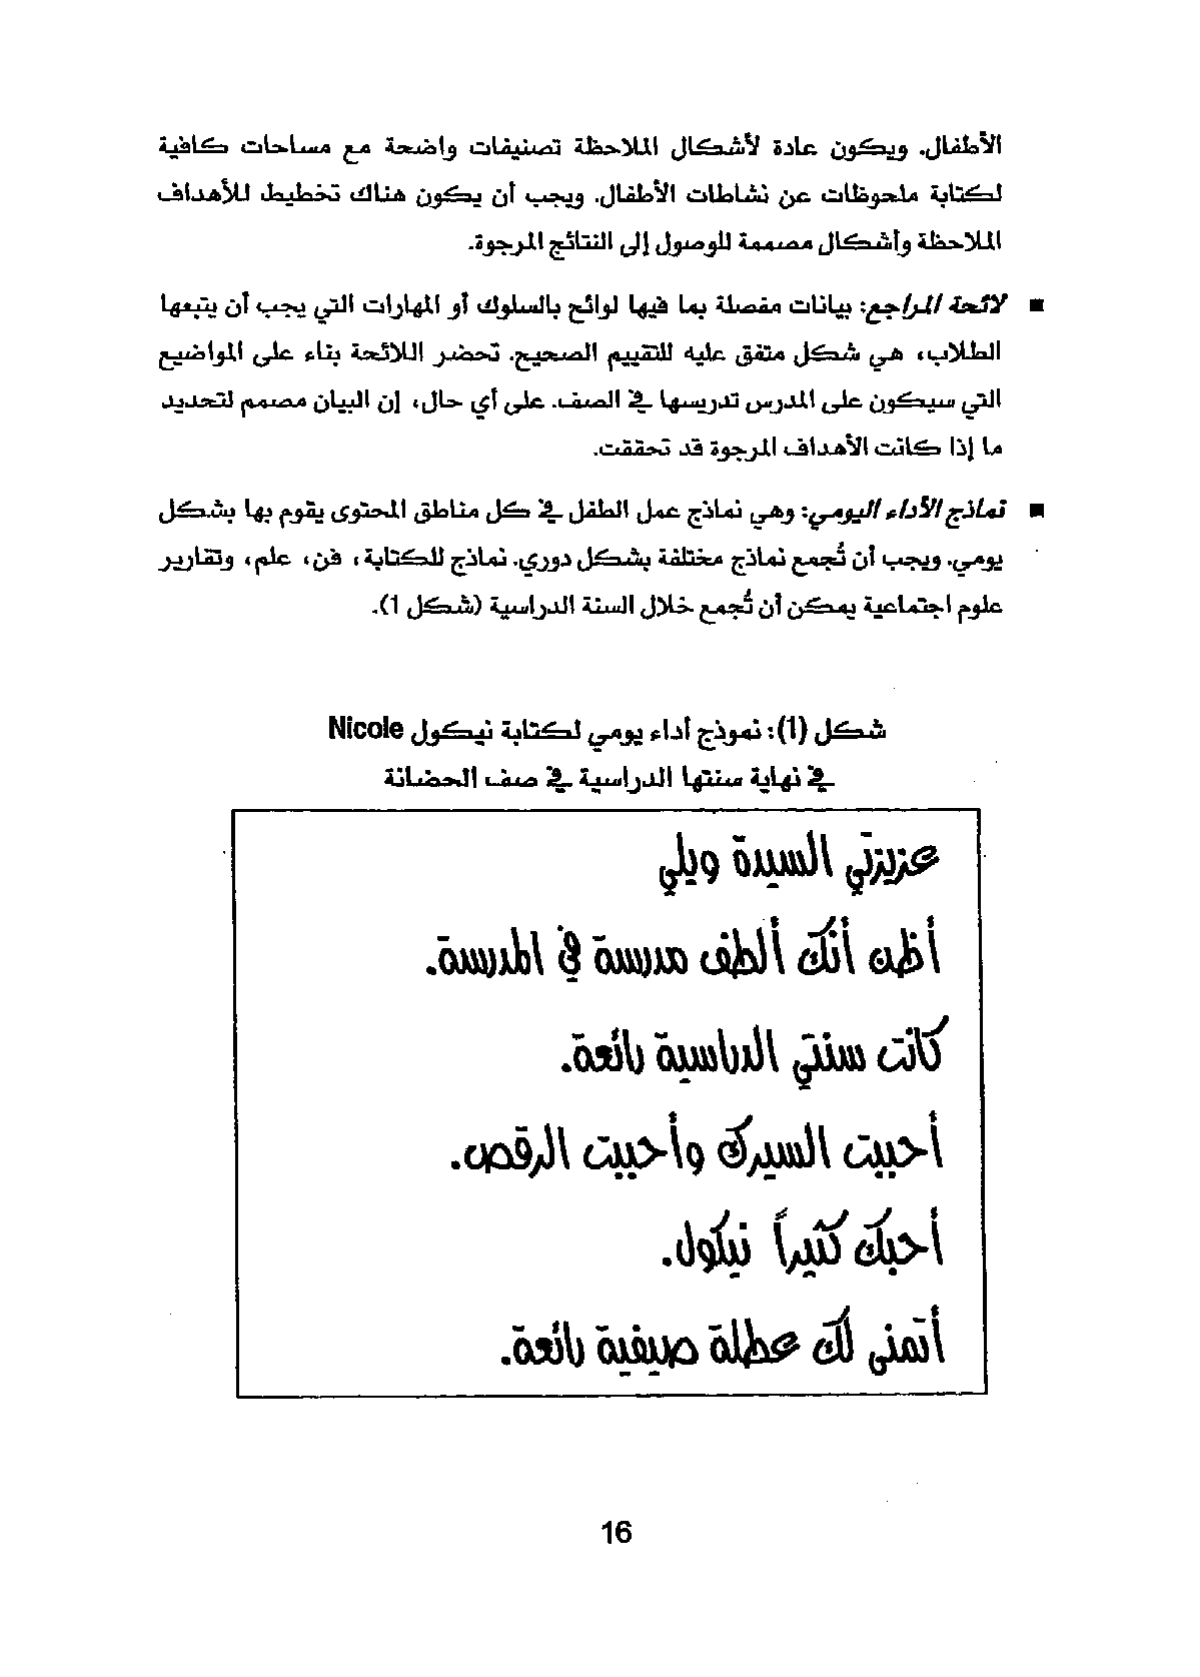 الأطفال. ويكون عادة لأشكال الملاحظة تصنيفات واضحة مع مساحات كافية
لكتابة ملحوظات عن نشاطات الأطفال. ويجب أن يكون هناك تخطيط للأهداف
الملاحظة وأشكال مصممة للوصول إلى النتائج المرجوة.
■ لائحة المراجع: بيانات مفصلة بما فيها لوائح بالسلوك أو المهارات التي يجب أن يتبعها
الطلاب، هي شكل متفق عليه للتقييم الصحيح. تحضر اللائحة بناء على المواضيع
التي سيكون على المدرس تدريسها في الصف. على أي حال، إن البيان مصمم لتحديد
ما إذا كانت الأهداف المرجوة قد تحققت.
■ نماذج الأداء اليومي: وهي نماذج عمل الطفل في كل مناطق المحتوى يقوم بها بشكل
يومي. ويجب أن تُجمع نماذج مختلفة بشكل دوري. نماذج للكتابة، فن، علم، وتقارير
علوم اجتماعية يمكن أن تُجمع خلال السنة الدراسية (شكل 1).
شكل (1): نموذج أداء يومي لكتابة نيكول Nicole
في نهاية سنتها الدراسية في صف الحضانة
عزيزتي السيدة ويلي
أظن أنك ألطف مدرسة في المدرسة.
كانت سنتي الدراسية رائعة.
أحببت السيرك وأحببت الرقص.
أحبك كثيراً نيكول.
أتمنى لك عطلة صيفية رائعة.
16